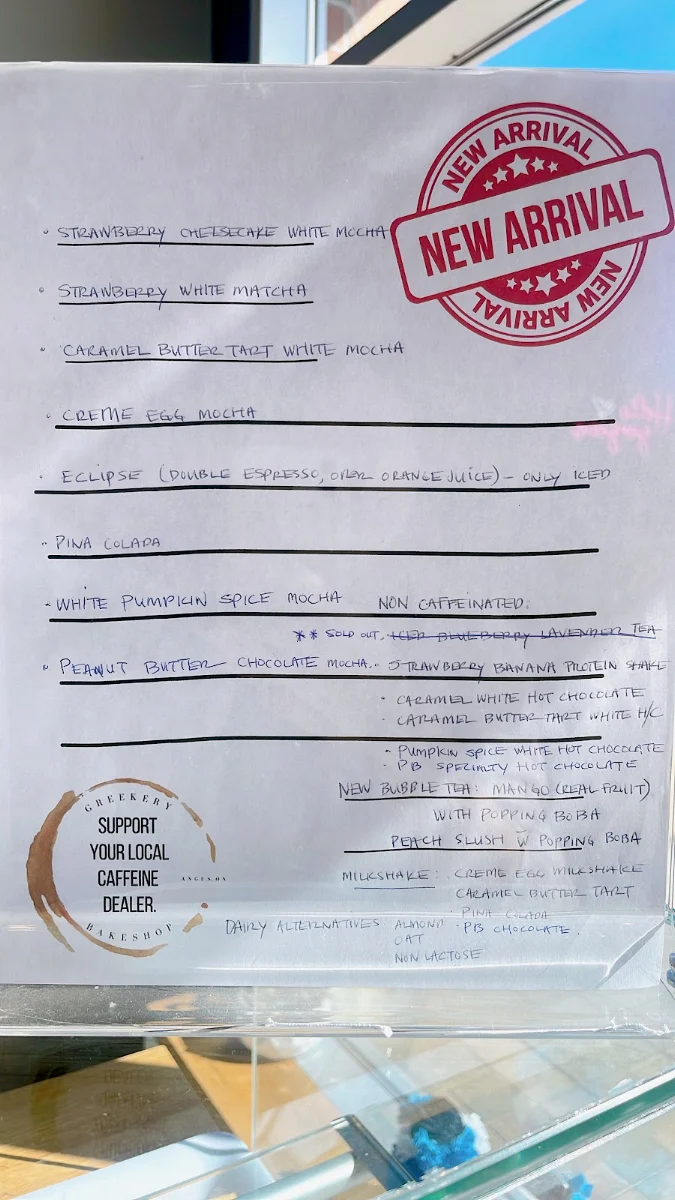 NEW ARRIVAL
NEW ARRIVAL
NEW ARRIVAL
• STRAWBERRY CHEESECAKE WHITE MOCHA
• STRAWBERRY WHITE MATCHA
• CARAMEL BUTTER TART WHITE MOCHA
• CREME EGG MOCHA
• ECLIPSE (DOUBLE ESPRESSO, OVER ORANGE JUICE) - ONLY ICED
• PINA COLADA
• WHITE PUMPKIN SPICE MOCHA
NON CAFFEINATED:
** SOLD OUT. ICED BLUEBERRY LAVENDER TEA
• PEANUT BUTTER CHOCOLATE MOCHA.
• STRAWBERRY BANANA PROTEIN SHAKE
• CARAMEL WHITE HOT CHOCOLATE
• CARAMEL BUTTER TART WHITE H/C
• PUMPKIN SPICE WHITE HOT CHOCOLATE
• PB SPECIALTY HOT CHOCOLATE
NEW BUBBLE TEA: MANGO (REAL FRUIT)
WITH POPPING BOBA
PEACH SLUSH W POPPING BOBA
MILKSHAKE: • CREME EGG MILKSHAKE
CARAMEL BUTTER TART
• PINA COLADA
• PB CHOCOLATE.
DAIRY ALTERNATIVES ALMOND
OAT
NON LACTOSE
GREEKERY
SUPPORT
YOUR LOCAL
CAFFEINE
DEALER.
BAKESHOP